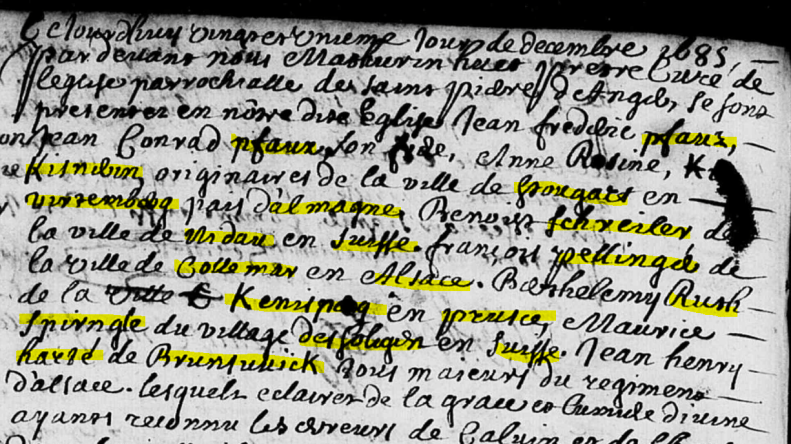 Ce Jourdhuy vingt et unieme Jour de decembre 1685,
par devant nous Mathurin prestre Curé de
leglise parrochialle de saint pierre d'Angers se sont
presentez en nôtre dite Eglise Jean frederic pfaux,
Jean Conrad pfaux, son, Anne Rosine,
originaires de la ville de stougart en
virtemberg pais d'almagne, Benoist schreiler de
la ville de nidau en suisse. françois pellingé de
la ville de Collemar en Alsace. Barthelemy Rush
de la ville Kenispag en prusce, Maurice
spirngle du village de soligen en suisse. Jean henry
harté de Brunsuuick tous maieurs du regiment
d'alsace. lesquels eclairez de la grace et lumiere divine
ayants reconnu les erreurs de Calvin et de